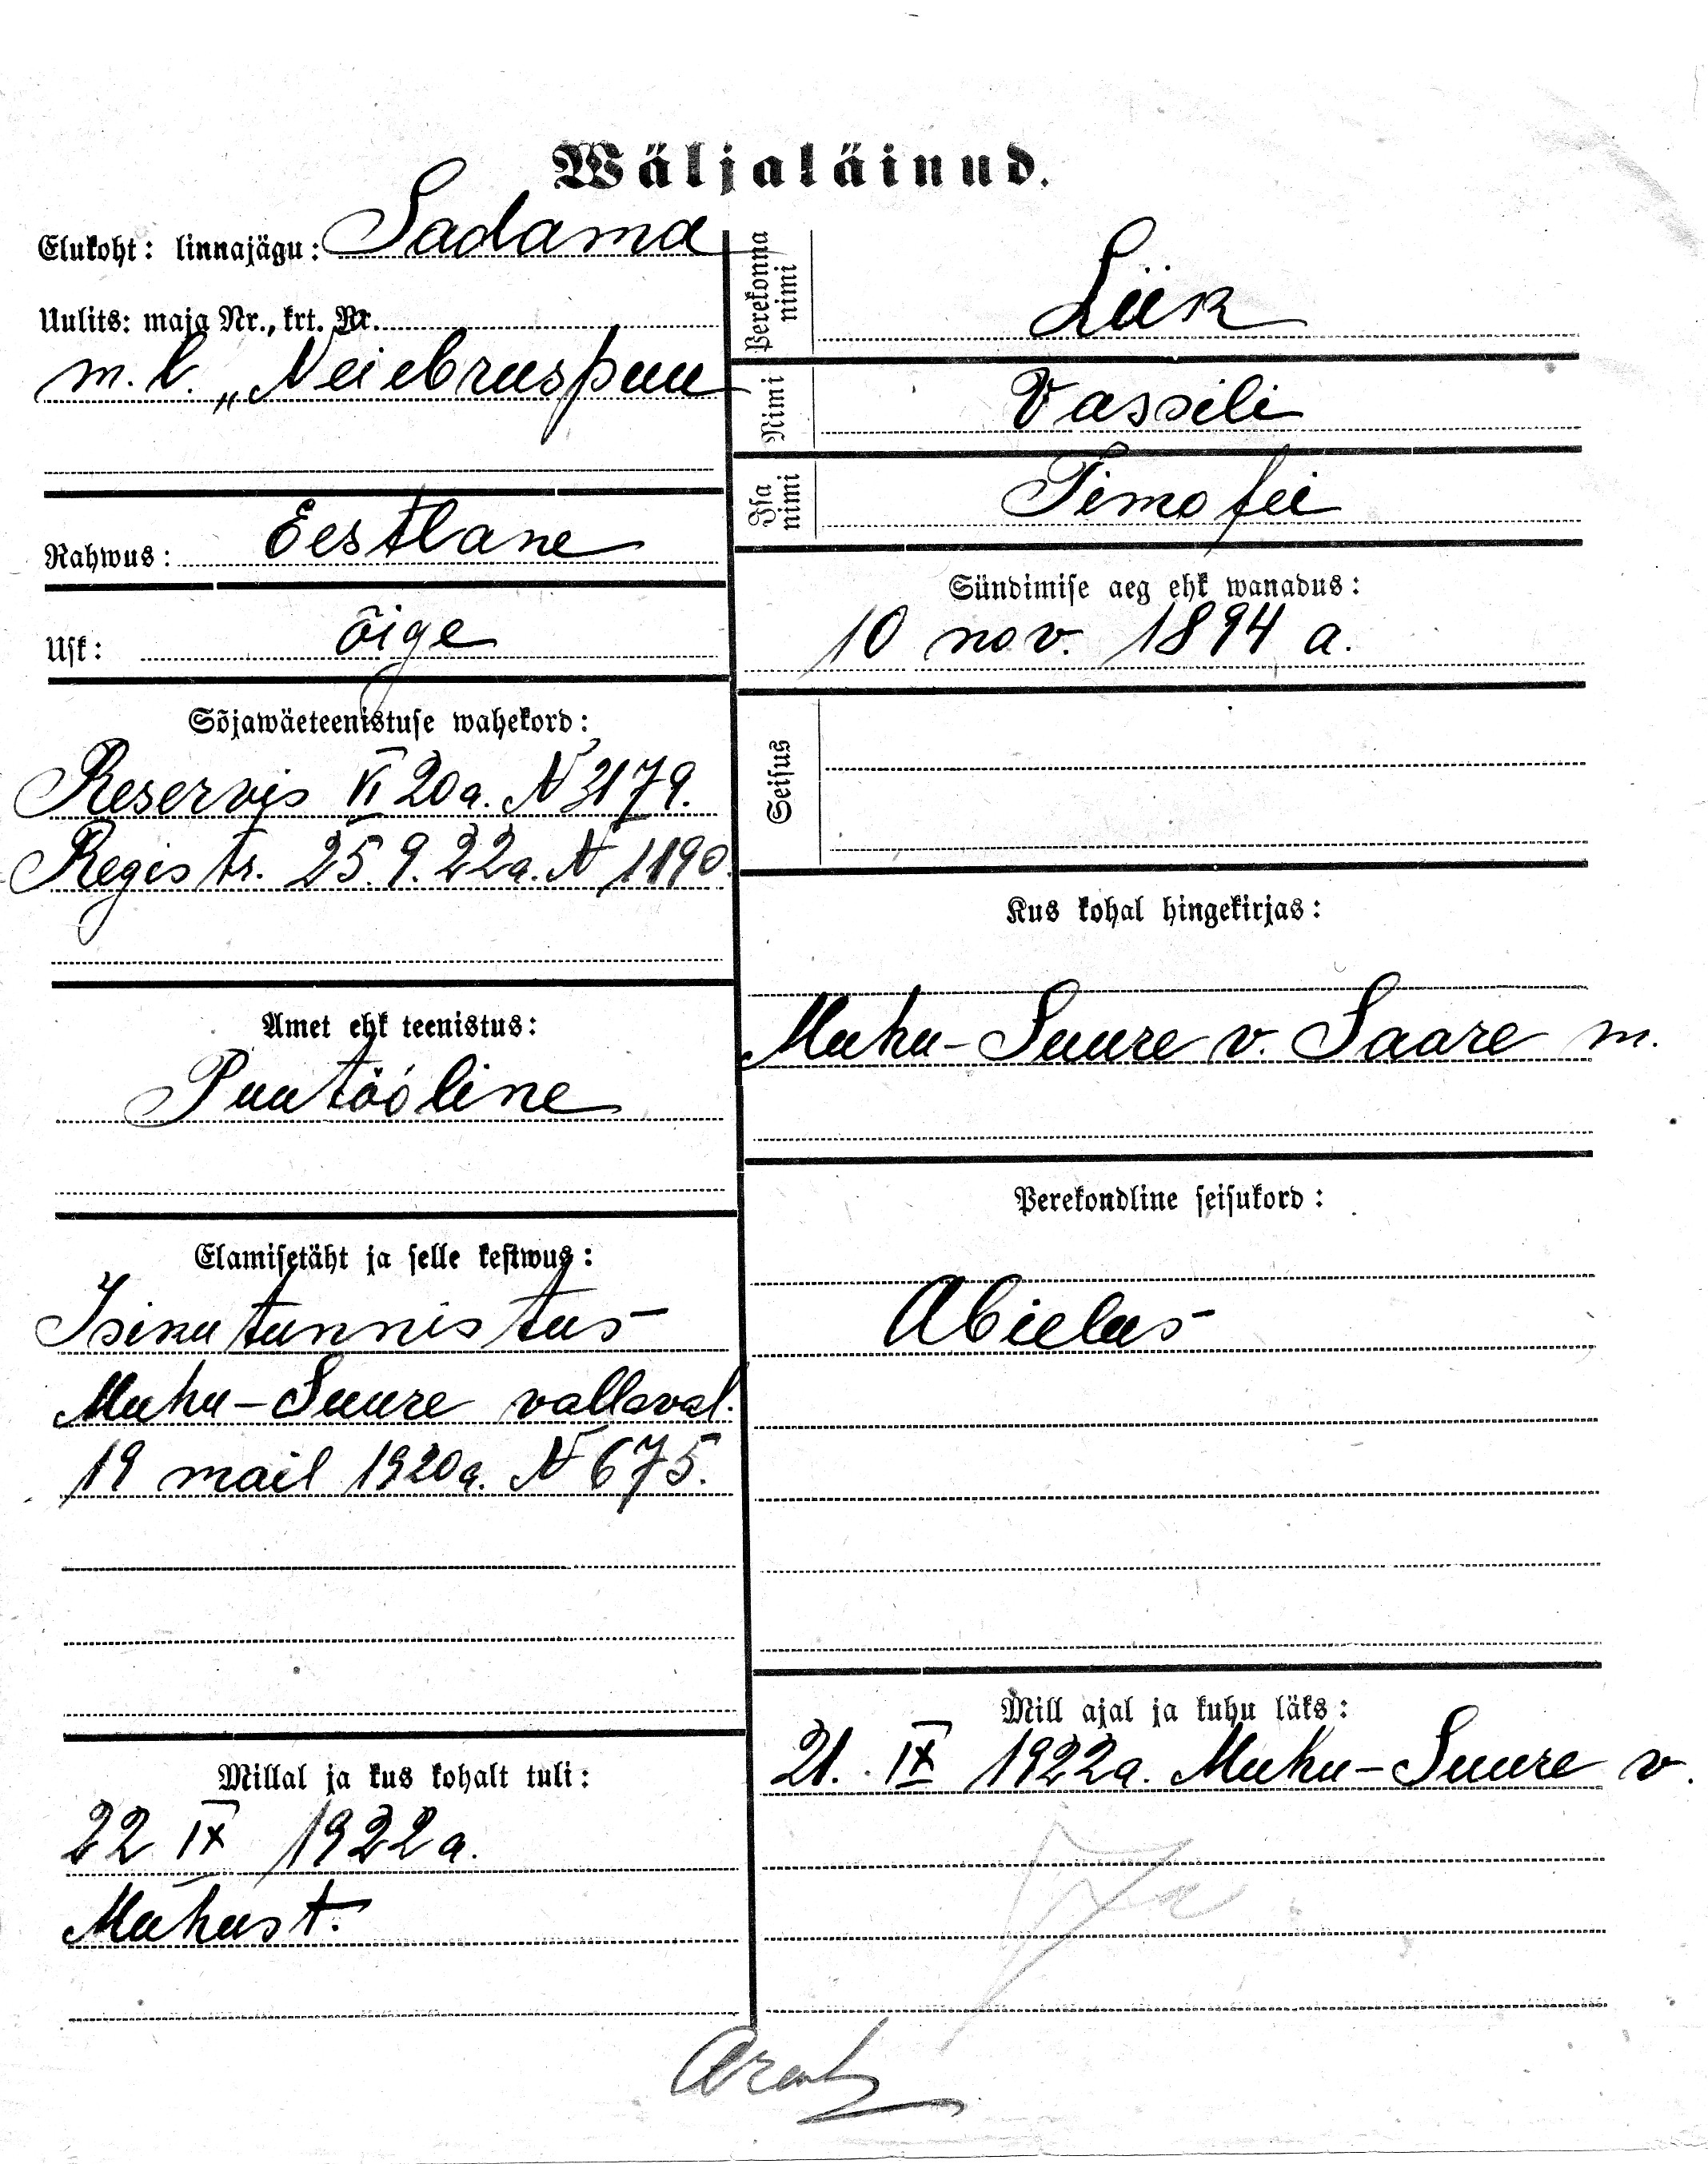 Wäljaläinud.
Elukoht: linnajägu: Sadama
Uulits: maja Nr., krt. Nr.
m. l. „Neiebruspuu
Rahwus: Eestlane
Usk: õige
Sõjawäeteenistuse wahekord:
Reservis VI 20a. N 3179.
Registr. 25.9.22a. N 1190.
Amet ehk teenistus:
Puutööline
Elamisetäht ja selle kestwus:
Isikutunnistus
Muhu-Suure vallaval.
19 mail 1920a. N 675.
Millal ja kus kohalt tuli:
22 IX 1922a.
Muhust.
Perekonna nimi
Liik
Nimi
Vassili
Isa nimi
Timofei
Sündimise aeg ehk wanadus:
10 nov. 1894 a.
Seisus
Kus kohal hingekirjas:
Muhu-Suure v. Saare m.
Perekondline seisukord:
Abielus
Mill ajal ja kuhu läks:
21. IX 1922a. Muhu-Suure v.